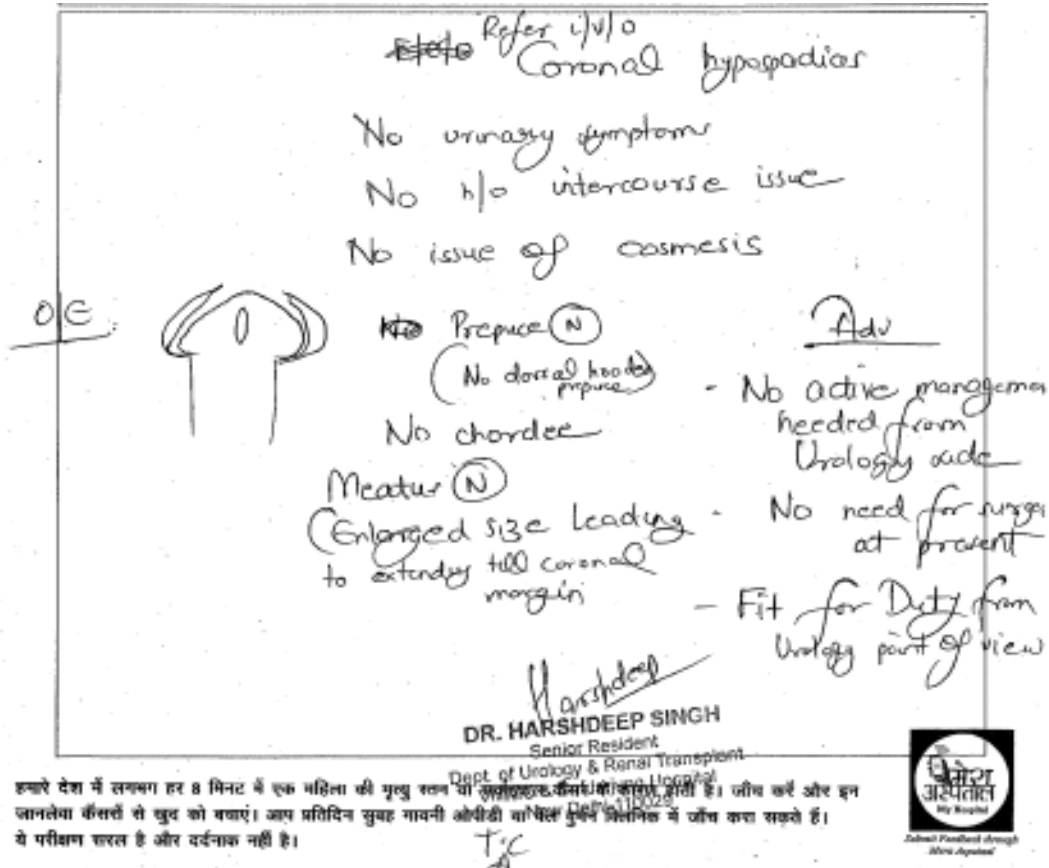 Refer i/v/o
Coronal hypospadias
No urinary symptoms
No h/o intercourse issue
No issue of cosmesis
O/E
Prepuce (N)
(No dorsal hooded prepuce)
No chordee
Meatus (N)
(Enlarged size leading
to extending till coronal
margin
Adv
- No active managemen
needed from
Urology side
- No need for surge
at present
- Fit for Duty from
Urology point of view
Harshdeep
DR. HARSHDEEP SINGH
Senior Resident
Dept. of Urology & Renal Transplant
Hospital
New Delhi-110029
हमारे देश में लगभग हर 8 मिनट में एक महिला की मृत्यु स्तन या कैंसर के कारण होती है। जाँच करें और इन
जानलेवा कैंसरों से खुद को बचाएं। आप प्रतिदिन सुबह गायनी ओपीडी या वेल वुमेन क्लिनिक में जाँच करा सकते हैं।
ये परीक्षण सरल है और दर्दनाक नहीं है।
मेरा
अस्पताल
My Hospital
Submit Feedback through
Mera Aspataal